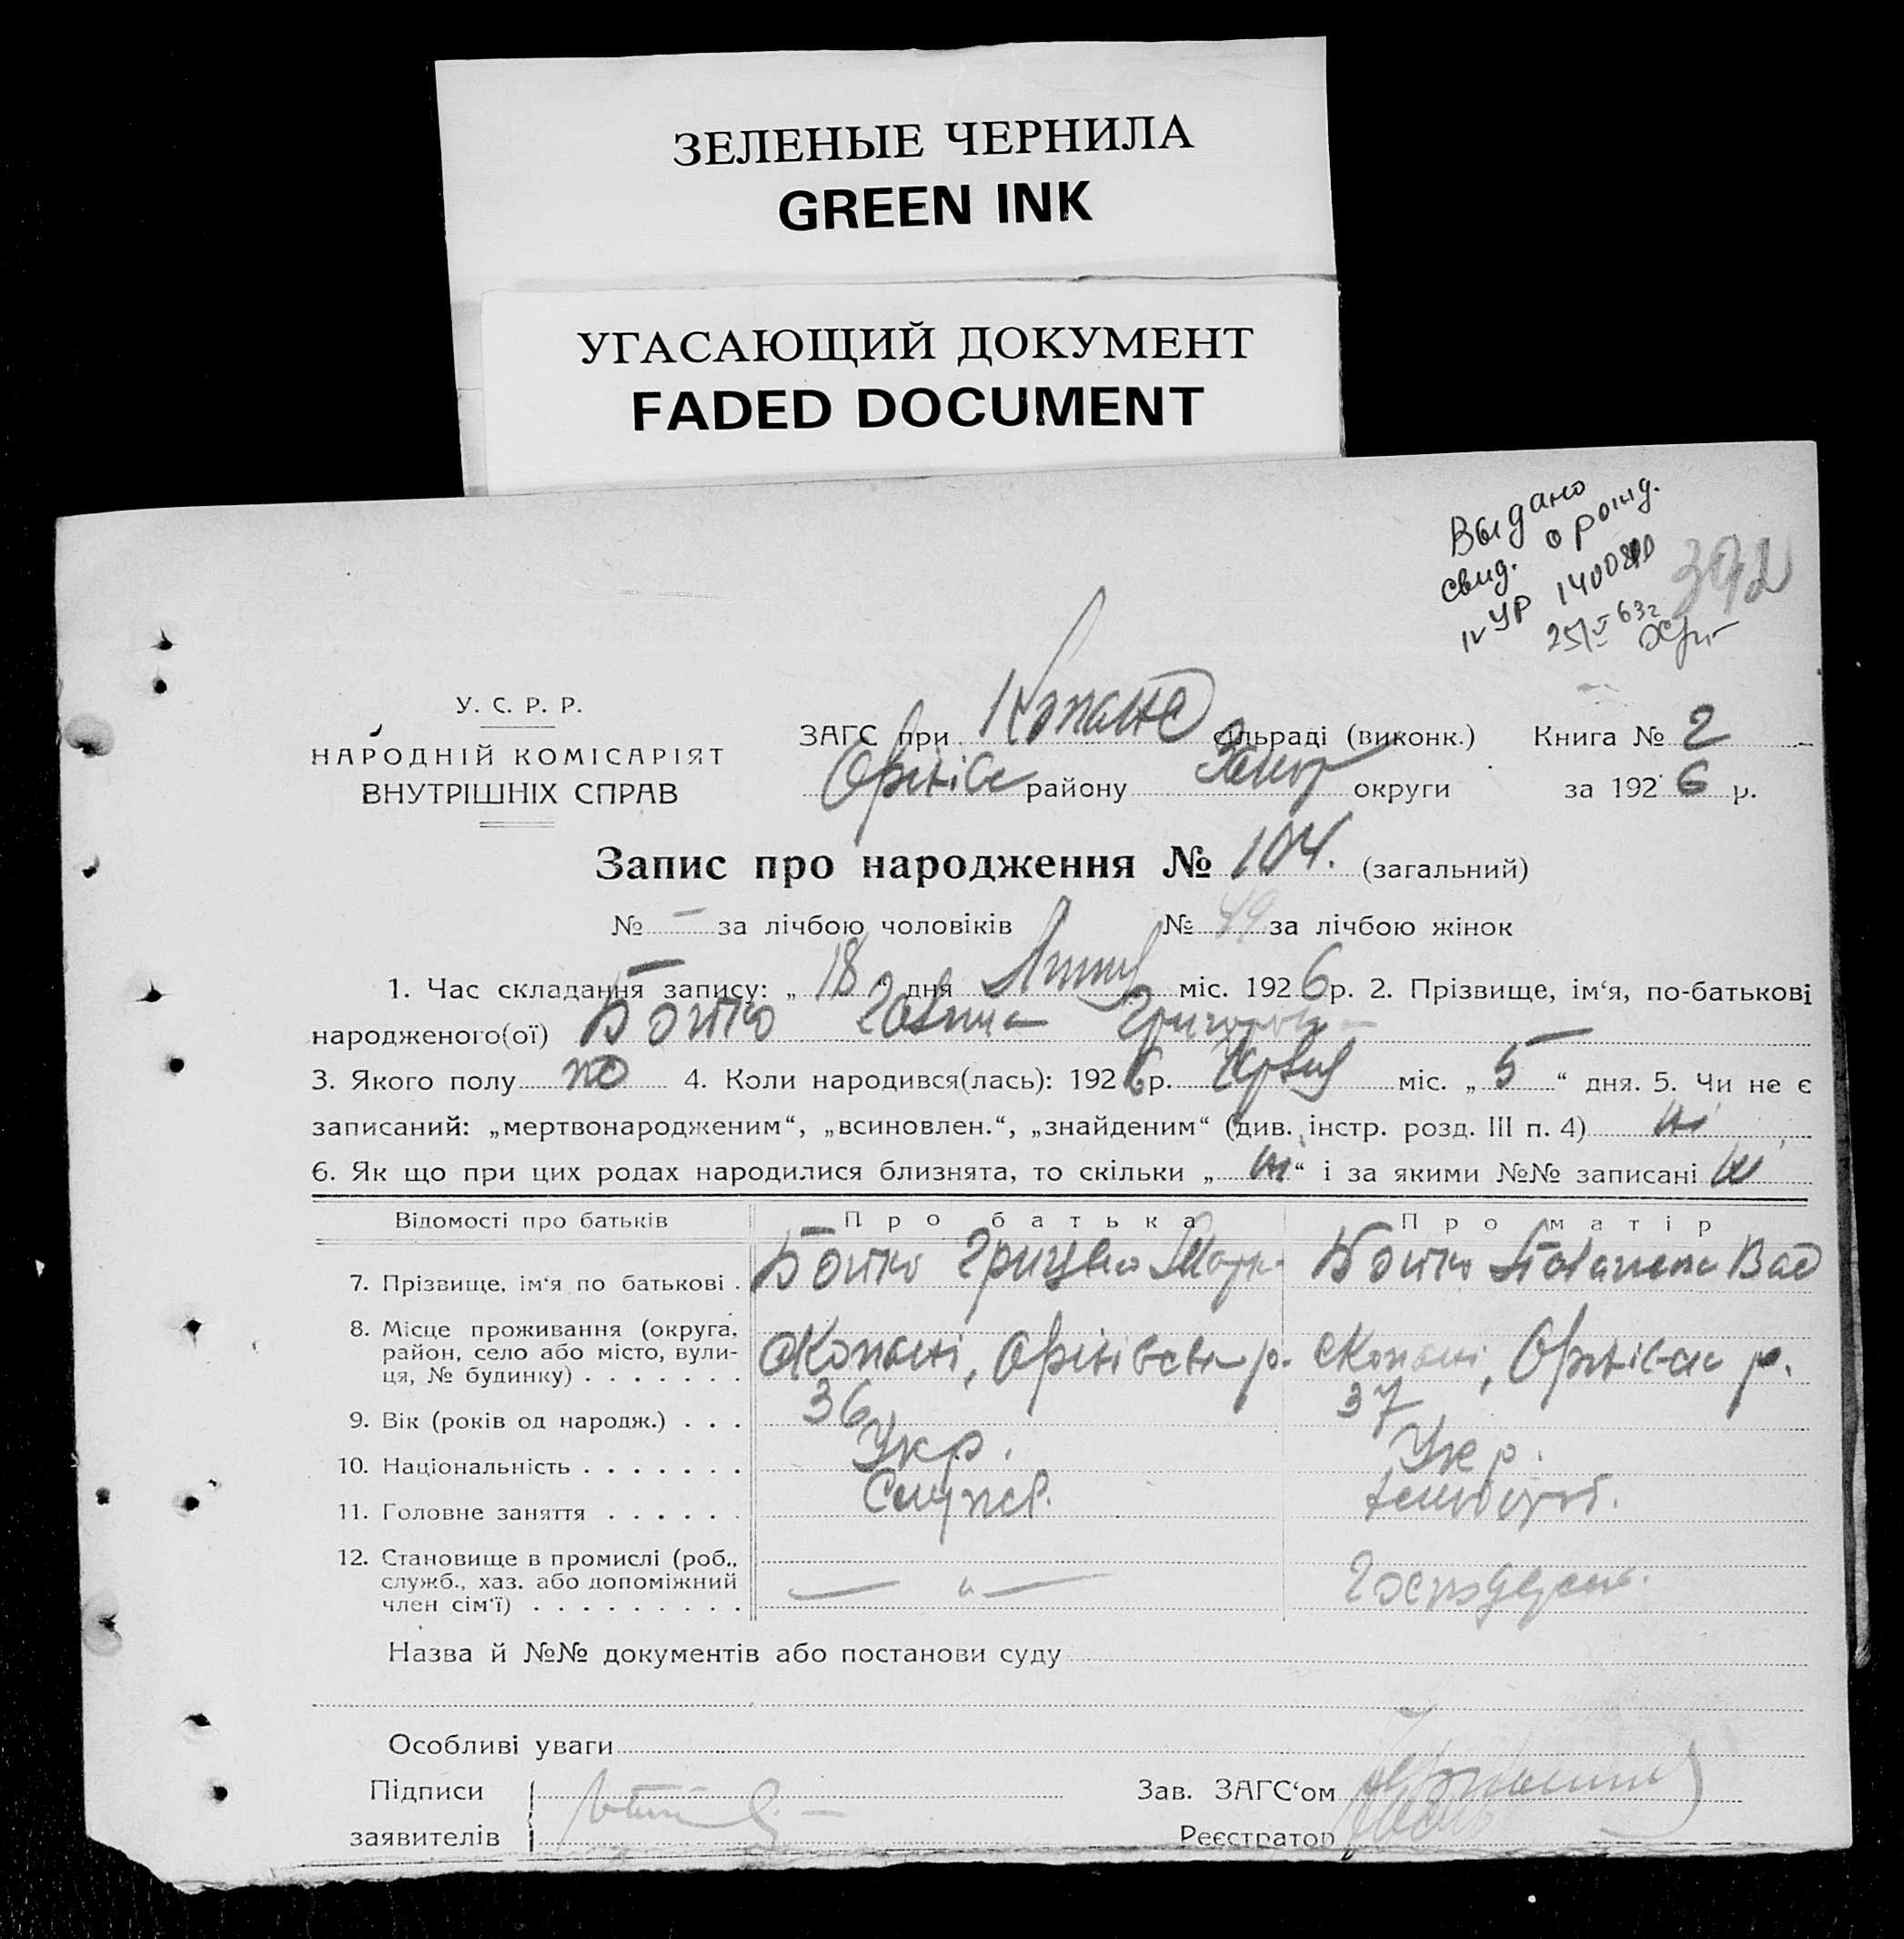 ЗЕЛЕНЫЕ ЧЕРНИЛА
GREEN INK
УГАСАЮЩИЙ ДОКУМЕНТ
FADED DOCUMENT
Выдано
свид. о рожд.
IV УР
25/V 63г
392
У. С. Р. Р.
НАРОДНІЙ КОМІСАРІЯТ
ВНУТРІШНІХ СПРАВ
ЗАГС при Копане сільраді (виконк.) Книга № 2
Оріхівс району Запор округи за 1926 р.
Запис про народження № 104. (загальний)
№ — за лічбою чоловіків № 49 за лічбою жінок
1. Час складання запису: „ 18 “ дня міс. 1926 р. 2. Прізвище, ім‘я, по-батькові
народженого(ої) Бойко Григоровна
3. Якого полу 4. Коли народився(лась): 1926 р. Червня міс. „ 5 “ дня. 5. Чи не є
записаний: „мертвонародженим“, „всиновлен.“, „знайденим“ (див. інстр. розд. III п. 4) ні
6. Як що при цих родах народилися близнята, то скільки „ ні “ і за якими №№ записані ні
Відомості про батьків Про батька Про матір
7. Прізвище, ім‘я по батькові . Бойко Грицько Марк. Бойко Вас
8. Місце проживання (округа,
район, село або місто, вули-
ця, № будинку) . . . . . . . с Копані, Оріхівськ р. с Копані, Оріхівськ р.
9. Вік (років од народж.) . . . 36 37
10. Національність . . . . . . . Укр. Укр.
11. Головне заняття . . . . . .
12. Становище в промислі (роб.,
служб., хаз. або допоміжний
член сім‘ї) . . . . . . . . . — „ —
Назва й №№ документів або постанови суду
Особливі уваги
Підписи Зав. ЗАГС‘ом
заявителів Реєстратор